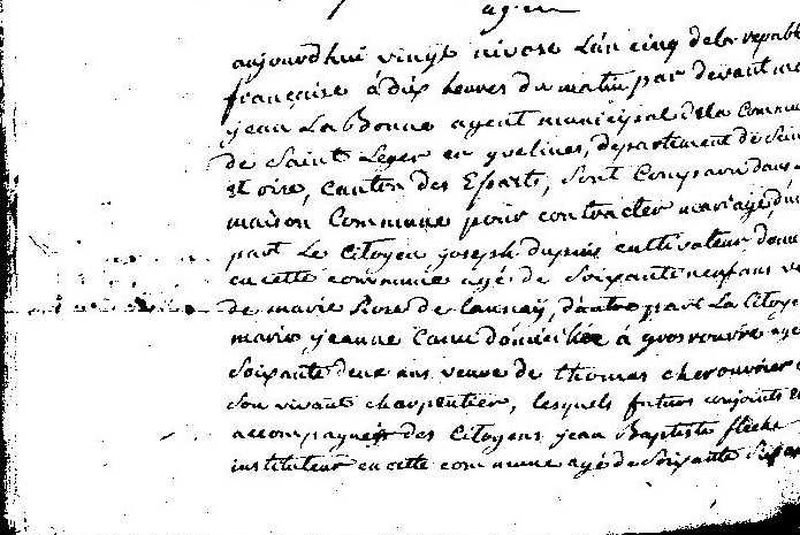 agen
aujourdhui vingt nivose L'an cinq dela republ
française à dix heures du matin par devant mo
jean La Bonne agent municipal dela Commu
de Saint Leger en yvelines, departement de Sein
et oise, canton des Essarts, sont Comparu dans
maison Commune pour contracter mariage, d'u
part Le Citoyen joseph dupuis cultivateur dem
en cette commune agé de soixante neuf ans ve
de marie Rose de launay, d'autre part La Citoye
marie jeanne domiciliée à grosrouvre age
Soixante deux ans veuve de thomas cherouvrier
Son vivant charpentier, lesquels futurs conjoints
accompagnés des Citoyens jean Baptiste fleche
instituteur en cette commune agé de soixante